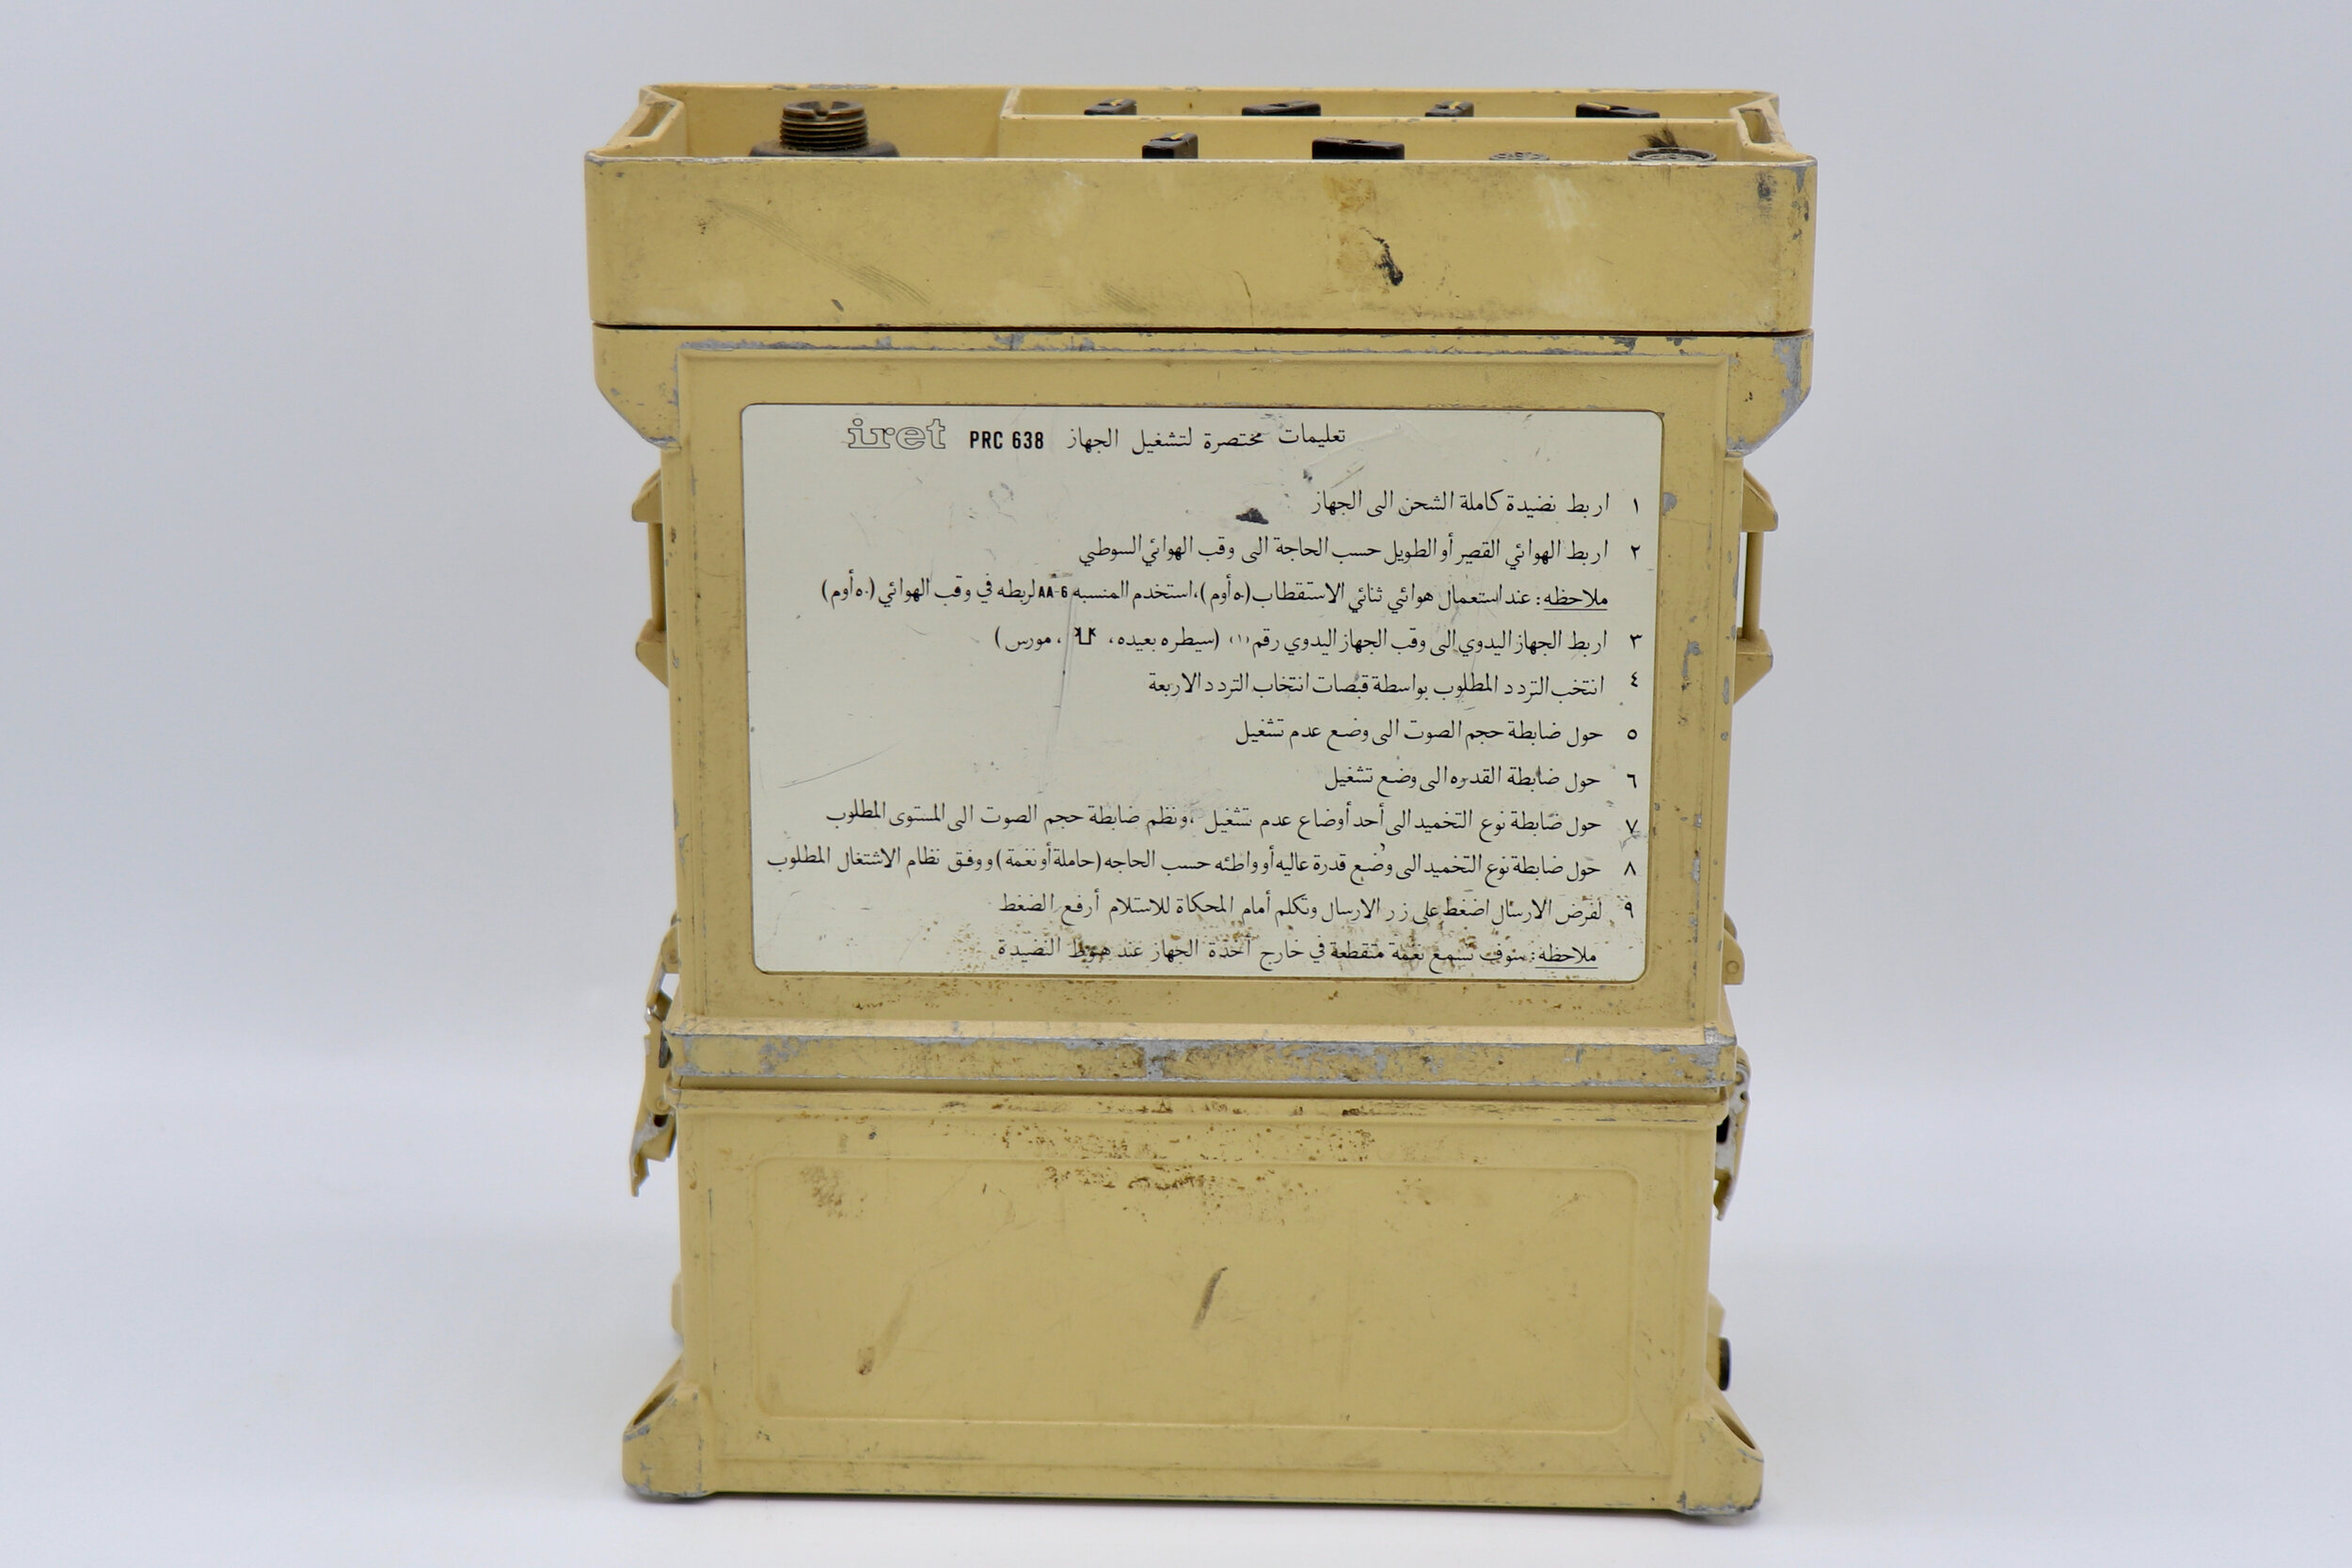 تعليمات مختصرة لتشغيل الجهاز PRC 638 iret
١ اربط نضيدة كاملة الشحن الى الجهاز
٢ اربط الهوائي القصير أو الطويل حسب الحاجة الى وقب الهوائي السوطي
ملاحظه : عند استعمال هوائي ثنائي الاستقطاب (٥٠ أوم)، استخدم المنسبه AA-6 لربطه في وقب الهوائي (٥٠ أوم)
٣ اربط الجهاز اليدوي الى وقب الجهاز اليدوي رقم (١) (سيطره بعيده، ، مورس)
٤ انتخب التردد المطلوب بواسطة قبضات انتخاب التردد الاربعة
٥ حول ضابطة حجم الصوت الى وضع عدم تشغيل
٦ حول ضابطة القدره الى وضع تشغيل
٧ حول ضابطة نوع التخميد الى أحد أوضاع عدم تشغيل ، ونظم ضابطة حجم الصوت الى المستوى المطلوب
٨ حول ضابطة نوع التخميد الى وضع قدرة عاليه أو واطئه حسب الحاجه (حاملة أو نغمة) ووفق نظام الاشتغال المطلوب
٩ لفرض الارسال اضغط على زر الارسال وتكلم أمام المحكاة للاستلام أرفع الضغط
ملاحظه : سوف تسمع نغمة متقطعة في خارج أخذة الجهاز عند هبوط النضيدة